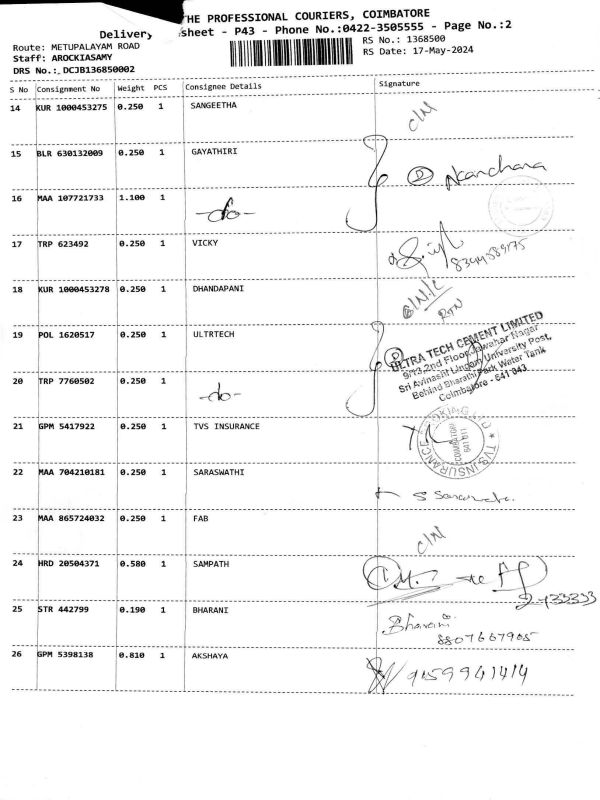 THE PROFESSIONAL COURIERS, COIMBATORE
Delivery sheet - P43 - Phone No.:0422-3505555 - Page No.:2
Route: METUPALAYAM ROAD
RS No.: 1368500
Staff: AROCKIASAMY
RS Date: 17-May-2024
DRS No.: DCJB136850002
S No Consignment No Weight PCS Consignee Details Signature
14 KUR 1000453275 0.250 1 SANGEETHA C/N
15 BLR 630132009 0.250 1 GAYATHIRI
16 MAA 107721733 1.100 1 -do-
17 TRP 623492 0.250 1 VICKY
18 KUR 1000453278 0.250 1 DHANDAPANI
19 POL 1620517 0.250 1 ULTRTECH
ULTRA TECH CEMENT LIMITED
9/13,2nd Floor,Jawahar Nagar
Sri Avinashi Lingam University Post,
Behind Bharathi Park Water Tank
Coimbatore - 641 043
20 TRP 7760502 0.250 1 -do-
21 GPM 5417922 0.250 1 TVS INSURANCE
22 MAA 704210181 0.250 1 SARASWATHI
23 MAA 865724032 0.250 1 FAB C/N
24 HRD 20504371 0.580 1 SAMPATH
25 STR 442799 0.190 1 BHARANI Bharani
8807667905
26 GPM 5398138 0.810 1 AKSHAYA 9159941414